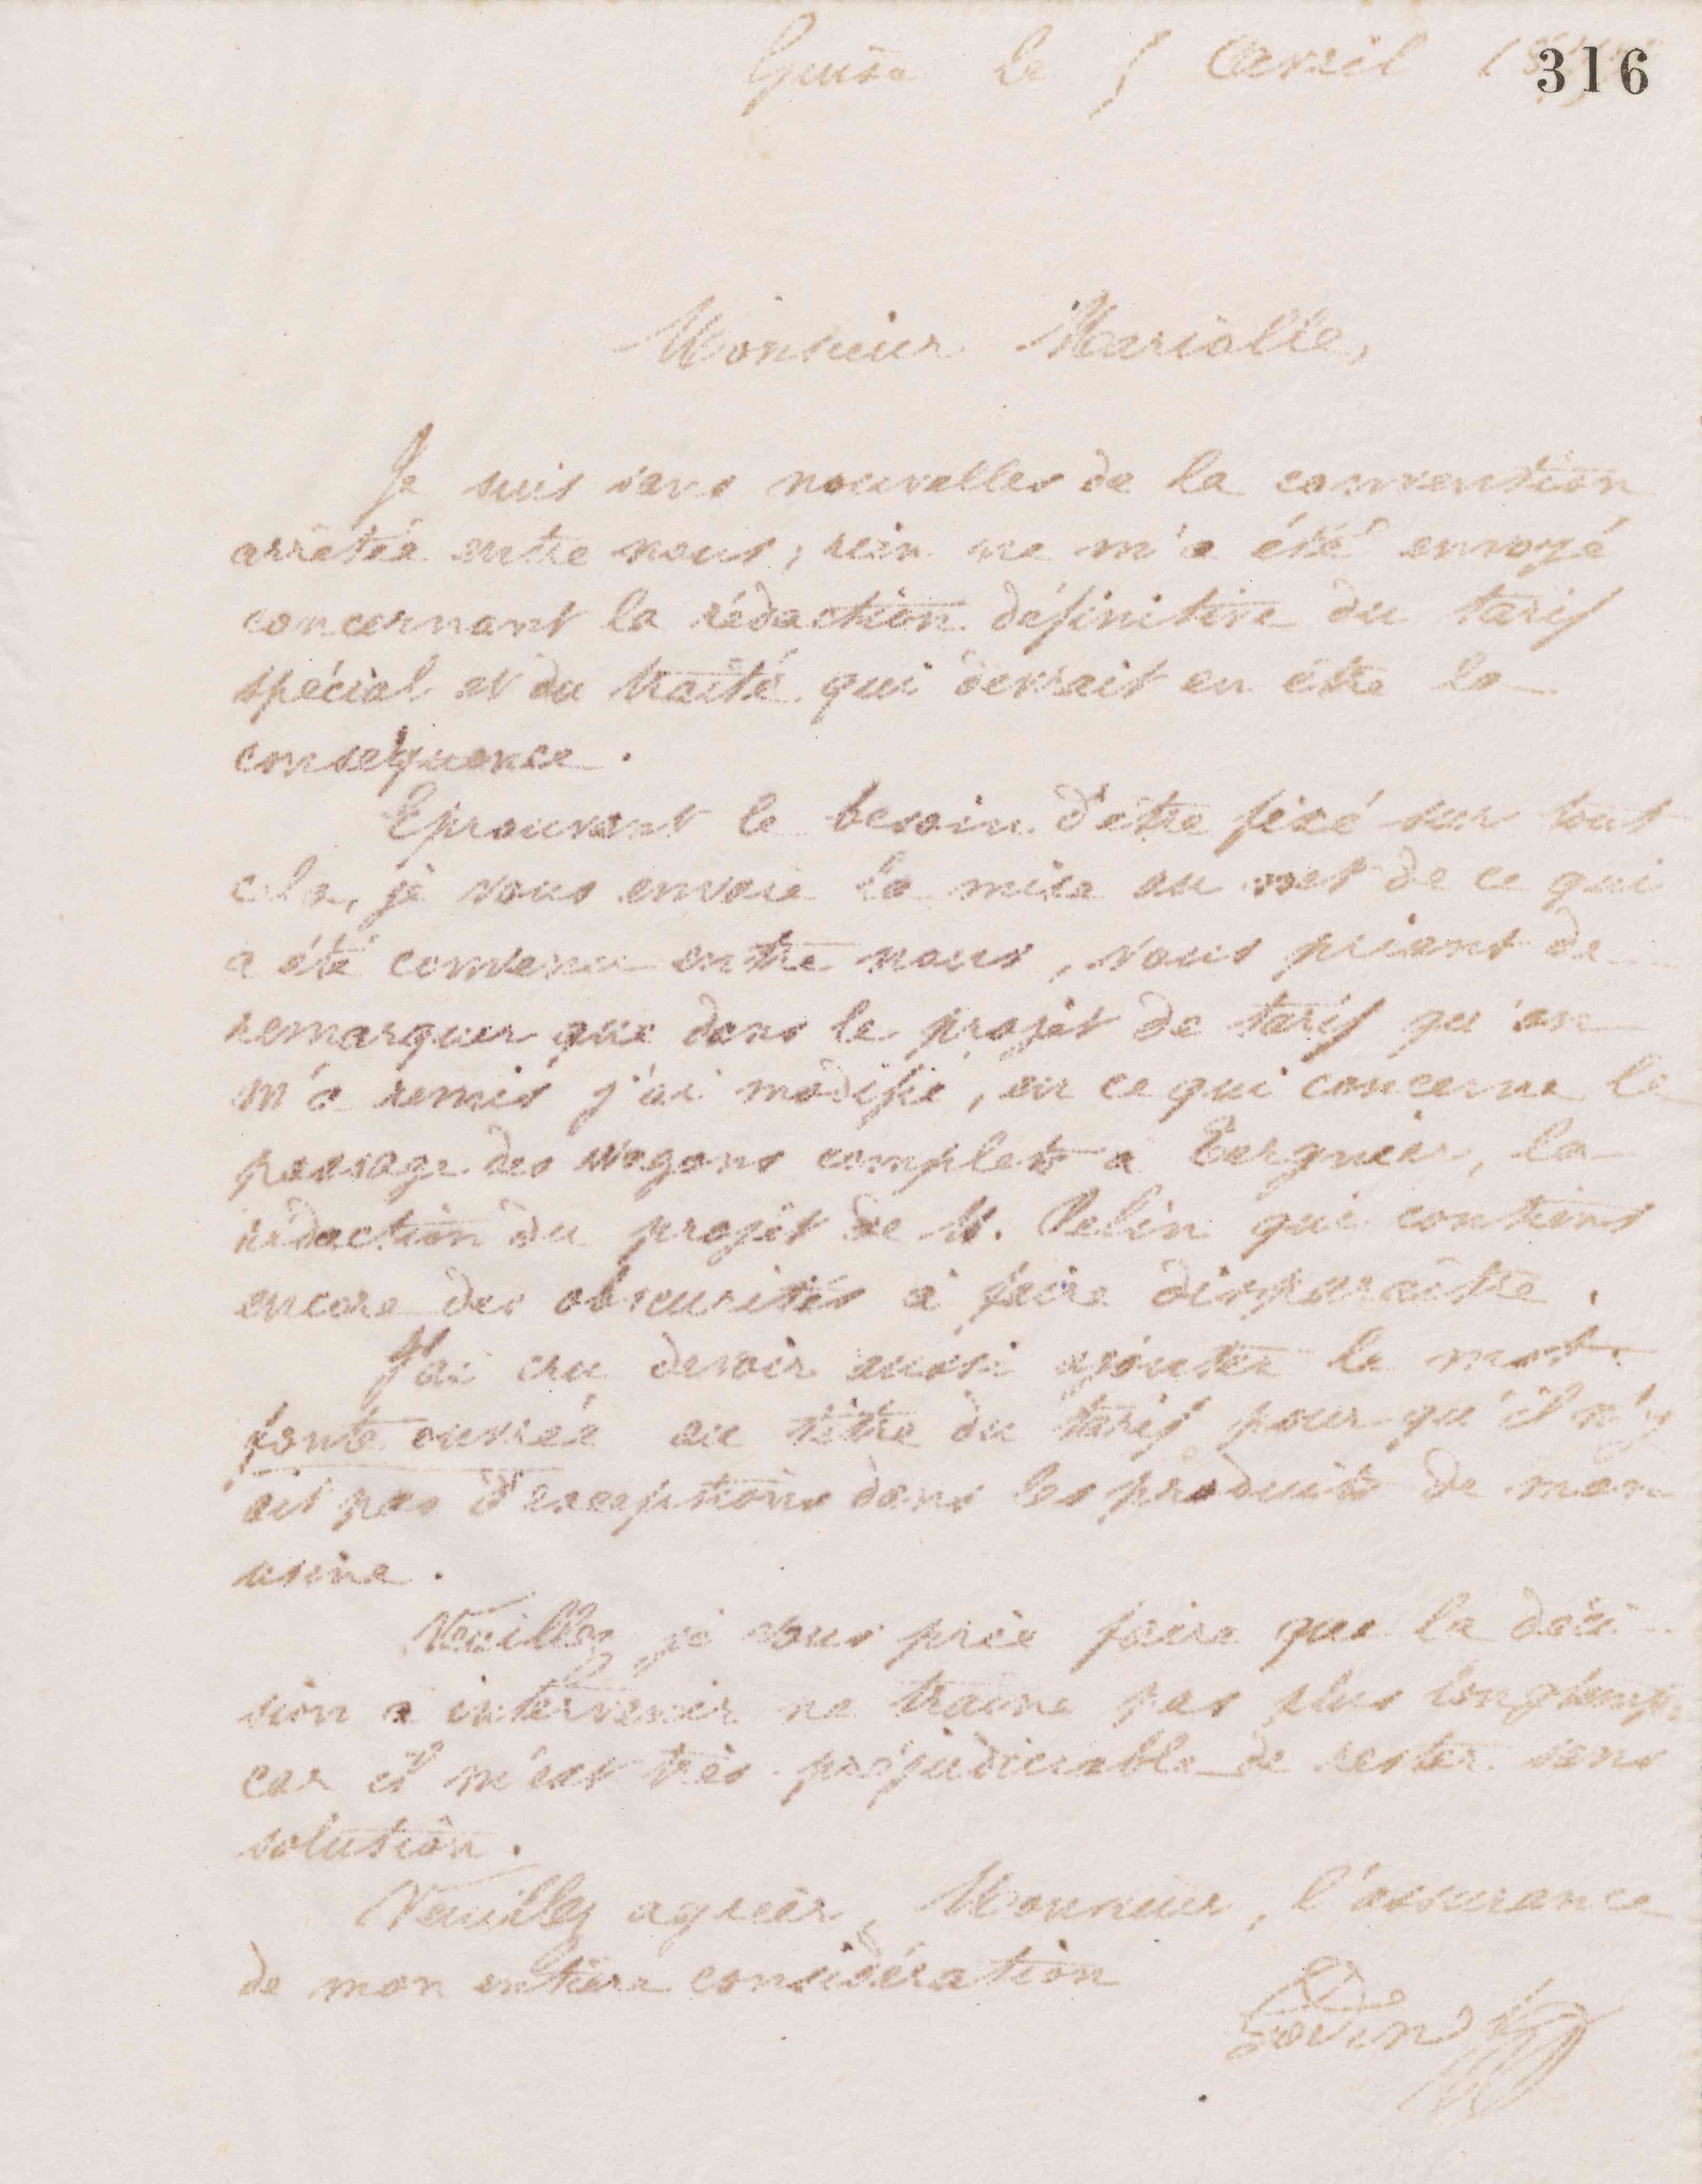 316
Guise le 5 Avril
Monsieur Mariolle,
Je suis sans nouvelles de la convention
arrêtée entre nous, rein ne m'a été envoyé
concernant la rédaction définitive du tarif
spécial et du traité qui devrait en être la
conséquence.
Eprouvant le besoin d'être fixé sur tout
cela, je vous envoie la mise au net de ce qui
a été convenu entre nous, vous priant de
remarquer que dans le projet de tarif qu'on
m'a remis j'ai modifié, en ce qui concerne le
passage des wagons complets a Tergnier, la
rédaction du projet de M. Pelin qui contient
encore des obscurités à faire disparaître.
J'ai cru devoir aussi ajouter le mot
fonte ouvrée au titre du tarif pour qu'il n'y
ait pas d'exceptions dans les produits de mon
usine.
Veuillez je vous prie faire que la déci-
sion a intervenir ne traine pas plus longtemps
car il m'est très préjudiciable de rester sans
solution.
Veuillez agréer, Monsieur, l'assurance
de mon entière considération
Godin